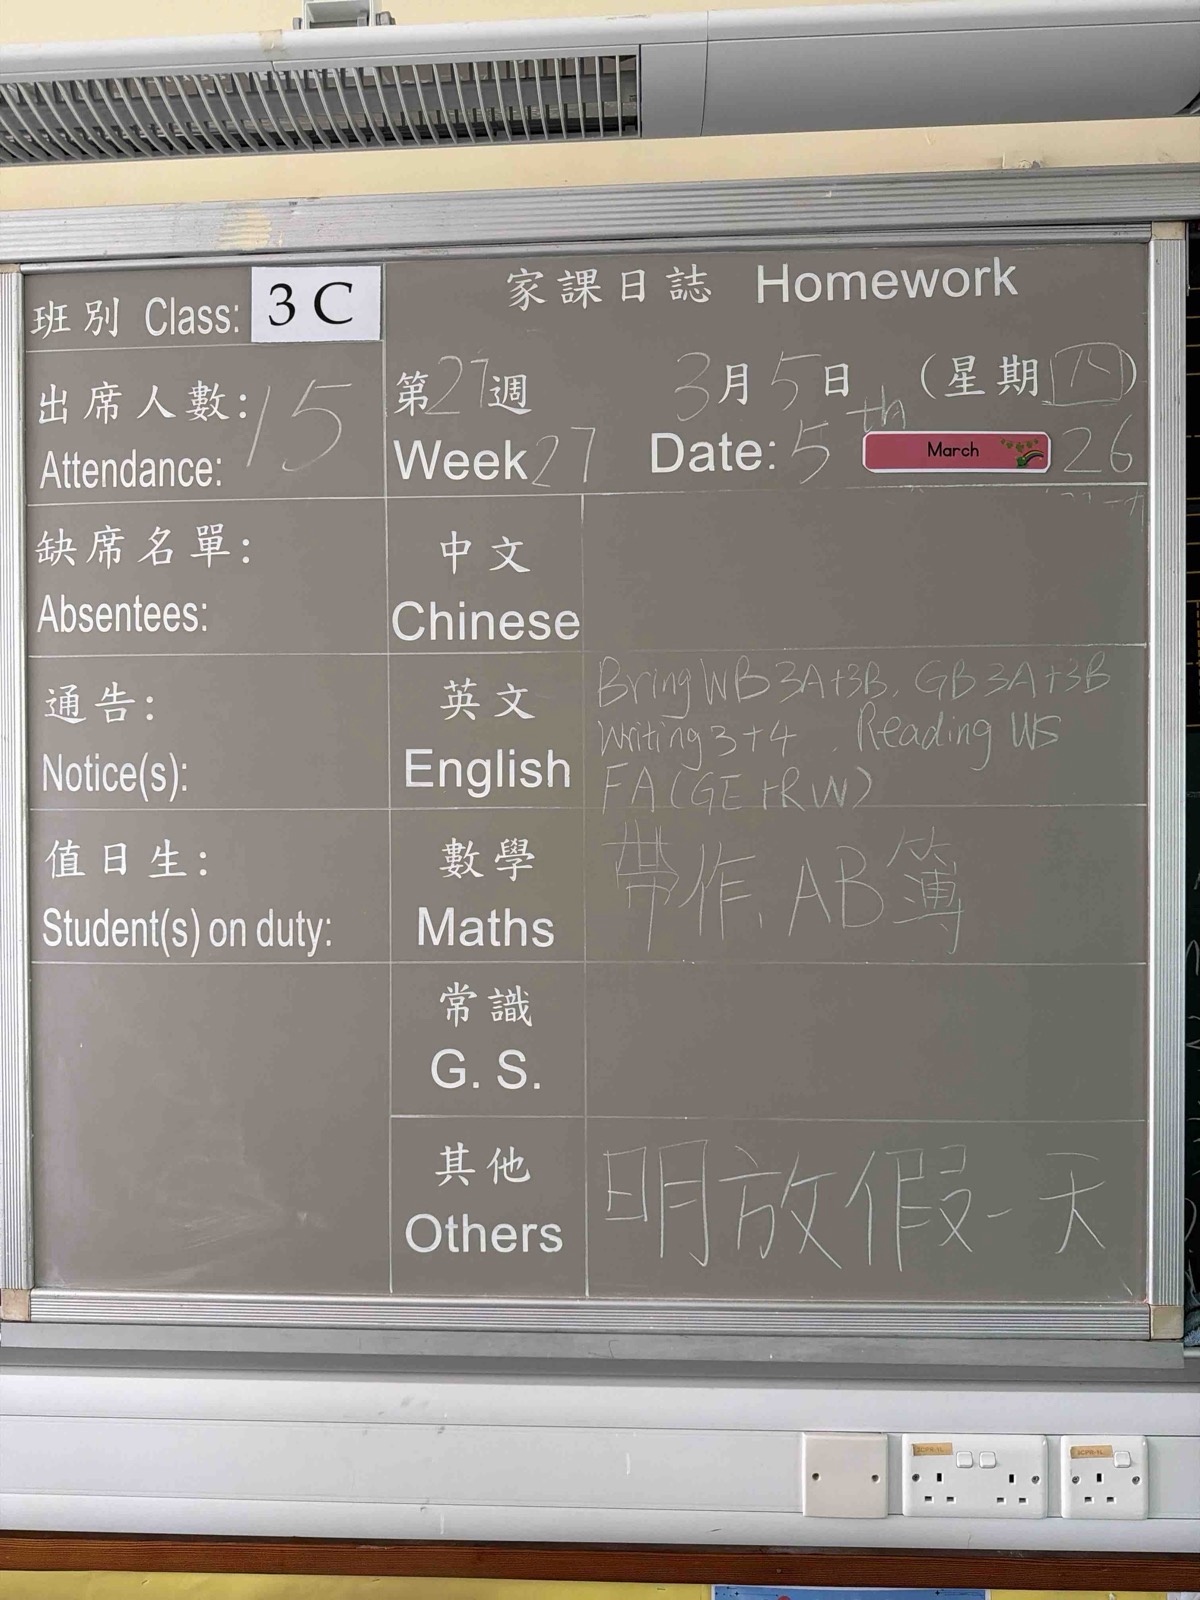 班別 Class: 3 C
家課日誌 Homework
出席人數: 15
Attendance:
第27週 3月5日 (星期四)
Week 27 Date: 5th March 26
缺席名單:
Absentees:
中文
Chinese
通告:
Notice(s):
英文
English
Bring WB 3A+3B, GB 3A+3B
Writing 3+4, Reading WS
FA (GE+RW)
值日生:
Student(s) on duty:
數學
Maths
帶作, AB簿
常識
G. S.
其他
Others
明放假一天